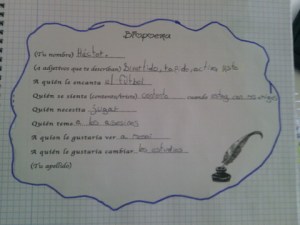 Biopoema
(Tu nombre) Héctor.
(4 adjetivos que te describan) Divertido,
A quién le encanta el fútbol
Quién se siente (contento/triste) contento cuando estoy con mi
Quién necesita jugar
Quién teme a los
A quién le gustaría ver a Messi
A quién le gustaría cambiar los
(Tu apellido)